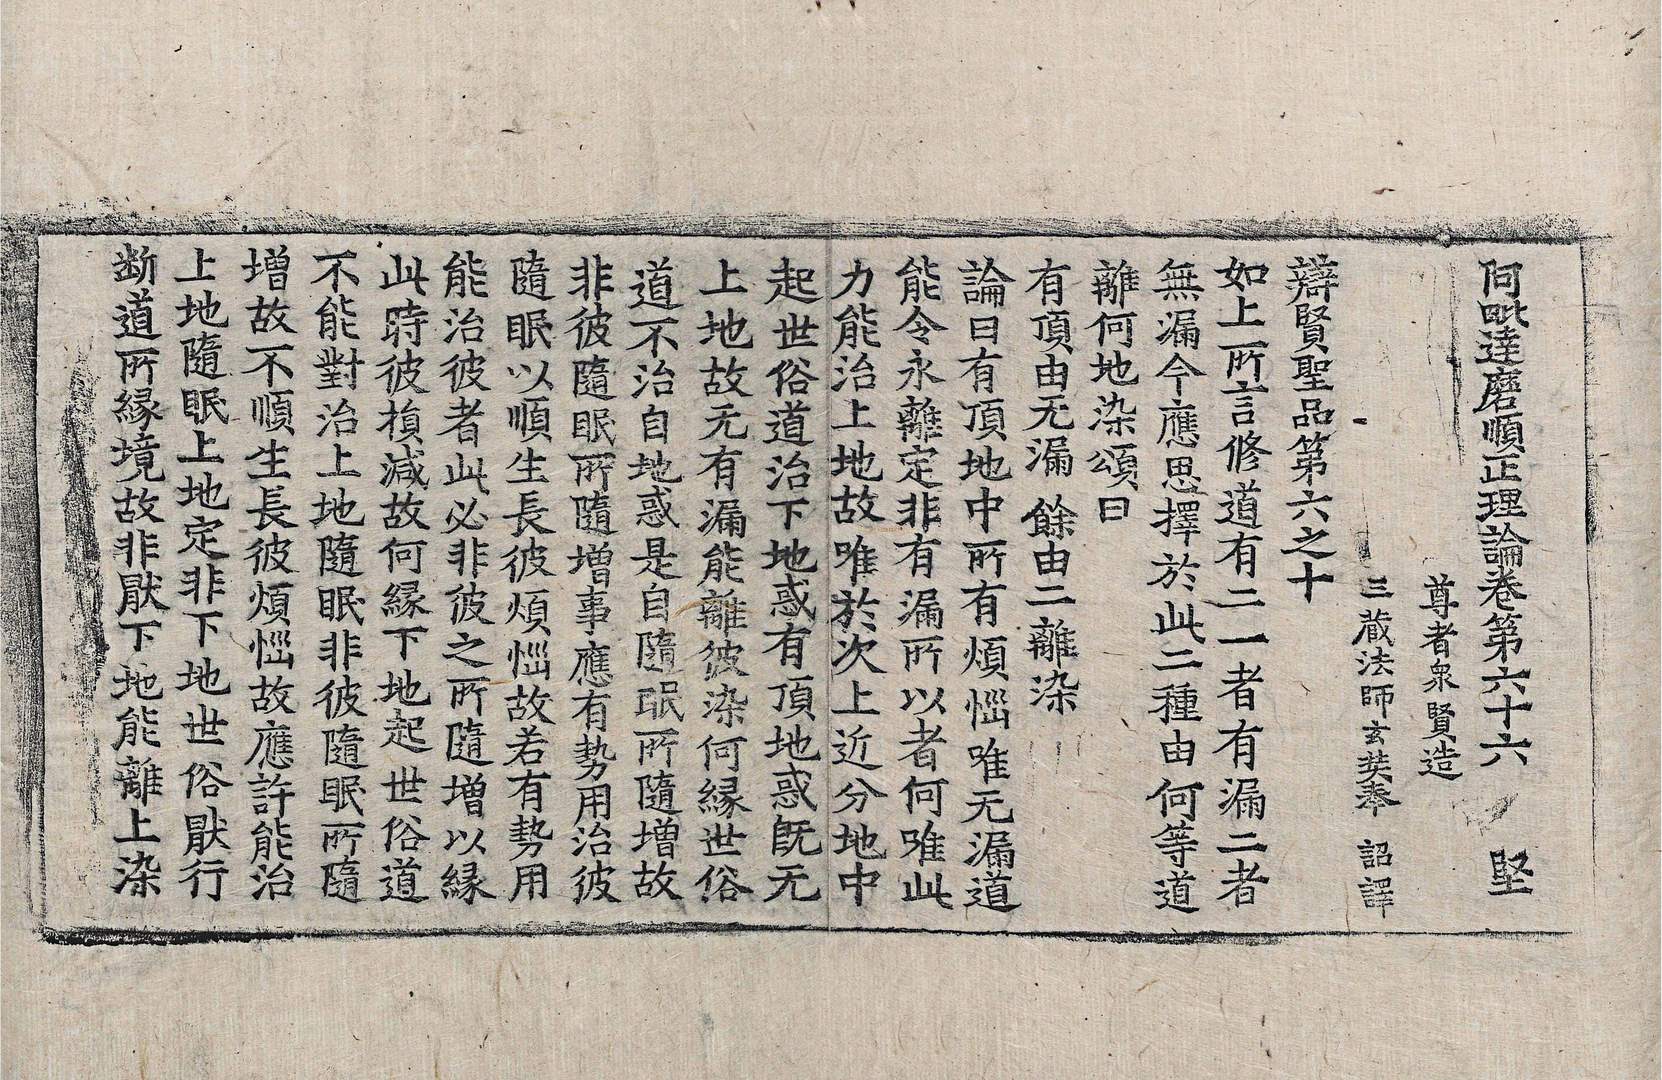 阿毗達磨順正理論卷第六十六 堅
尊者衆賢造
三藏法師玄奘奉 詔譯
辯賢聖品第六之十
如上所言修道有二一者有漏二者
無漏今應思擇於此二種由何等道
離何地染頌曰
有頂由无漏 餘由二離染
論曰有頂地中所有煩惱唯无漏道
能令永離定非有漏所以者何唯此
力能治上地故唯於次上近分地中
起世俗道治下地惑有頂地惑旣无
上地故无有漏能離彼染何緣世俗
道不治自地惑是自隨眠所隨增故
非彼隨眠所隨增事應有勢用治彼
隨眠以順生長彼煩惱故若有勢用
能治彼者此必非彼之所隨增以緣
此時彼損減故何緣下地起世俗道
不能對治上地隨眠非彼隨眠所隨
增故不順生長彼煩惱故應許能治
上地隨眠上地定非下地世俗猒行
斷道所緣境故非猒下地能離上染